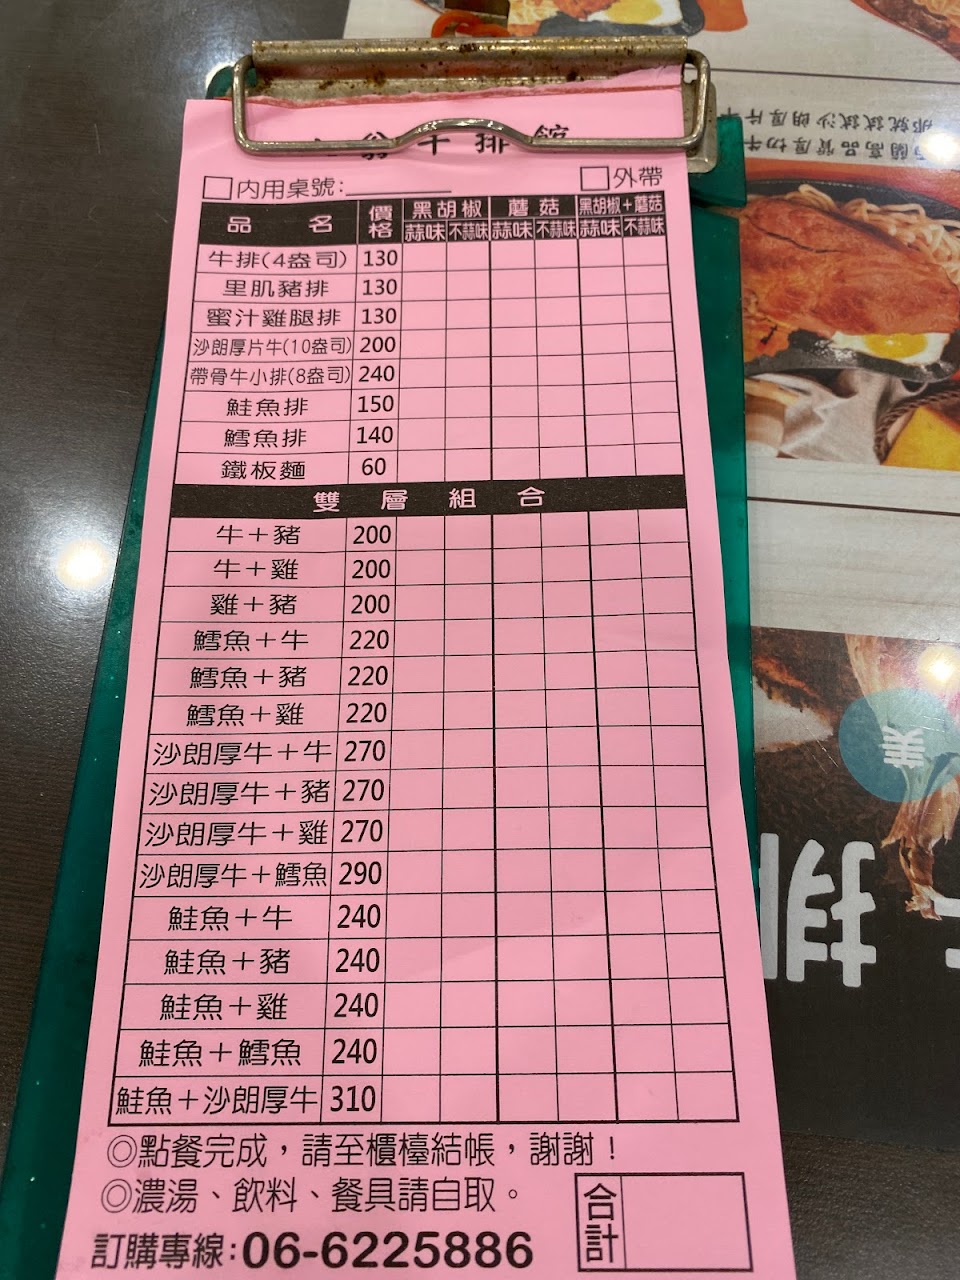 翁牛排館
□內用桌號：
□外帶
品名 價格 黑胡椒 蘑菇 黑胡椒＋蘑菇
蒜味 不蒜味 蒜味 不蒜味 蒜味 不蒜味
牛排(4盎司) 130
里肌豬排 130
蜜汁雞腿排 130
沙朗厚片牛(10盎司) 200
帶骨牛小排(8盎司) 240
鮭魚排 150
鱈魚排 140
鐵板麵 60
雙層組合
牛＋豬 200
牛＋雞 200
雞＋豬 200
鱈魚＋牛 220
鱈魚＋豬 220
鱈魚＋雞 220
沙朗厚牛＋牛 270
沙朗厚牛＋豬 270
沙朗厚牛＋雞 270
沙朗厚牛＋鱈魚 290
鮭魚＋牛 240
鮭魚＋豬 240
鮭魚＋雞 240
鮭魚＋鱈魚 240
鮭魚＋沙朗厚牛 310
◎點餐完成，請至櫃檯結帳，謝謝！
◎濃湯、飲料、餐具請自取。
合計
訂購專線:06-6225886
高品質厚切牛
那就試試沙朗厚片牛
美
排